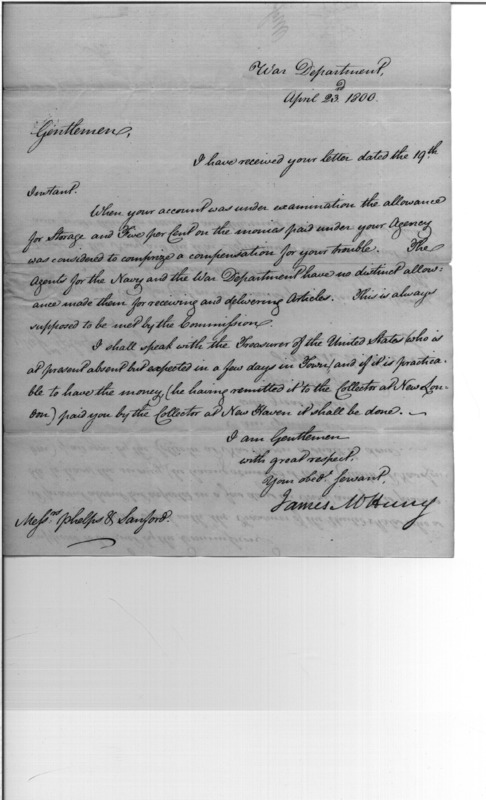 War Department,
April 23d. 1800.
Gentlemen,
I have received your letter dated the 19th.
Instant.
When your account was under examination the allowance
for Storage and Five per Cent on the monies paid under your Agency
was considered to comprize a compensation for your trouble. The
Agents for the Navy and the War Department have no distinct allow=
ance made them for receiving and delivering Articles. This is always
supposed to be met by the Commission.
I shall speak with the Treasurer of the United States (who is
at present absent but expected in a few days in Town) and if it is practica=
ble to have the money, (he having remitted it to the Collector at New Lon=
don) paid you by the Collector at New Haven it shall be done.
I am Gentlemen
with great respect,
Your obdt. servant,
James McHenry
Messrs Phelps & Sanford.